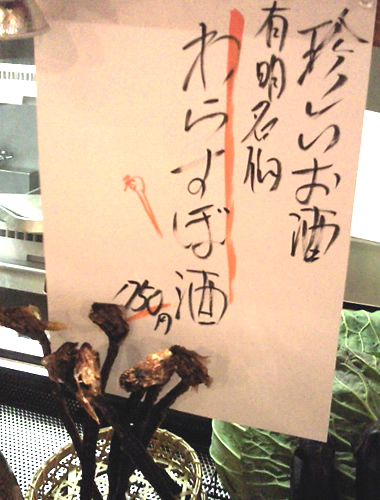 珍しいお酒
有明名物
わらすぼ酒
750円